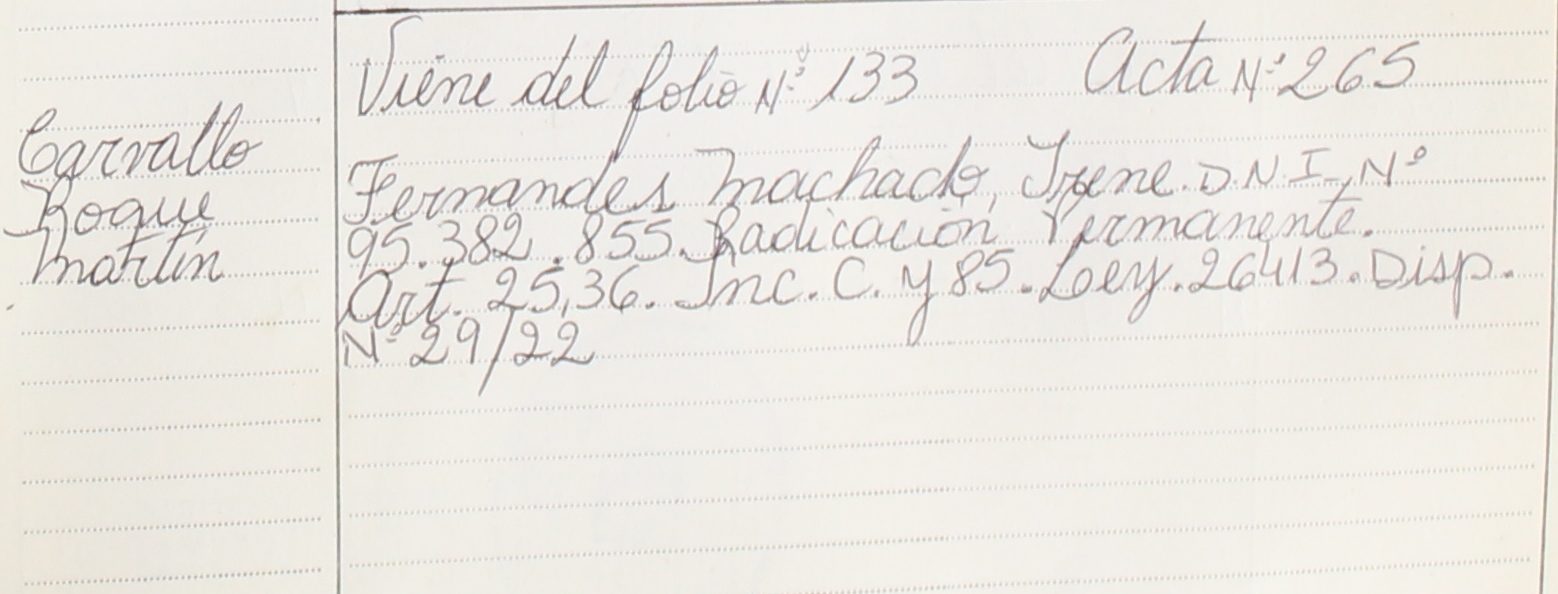 Viene del folio Nº 133 Acta Nº 265
Carvallo
Roque
Martín
Fernandes Machado, Irene. D.N.I. Nº
95.382.855. Radicación Permanente.
Art. 25,36. Inc. C. y 85. Ley. 26413. Disp.
Nº 29/22